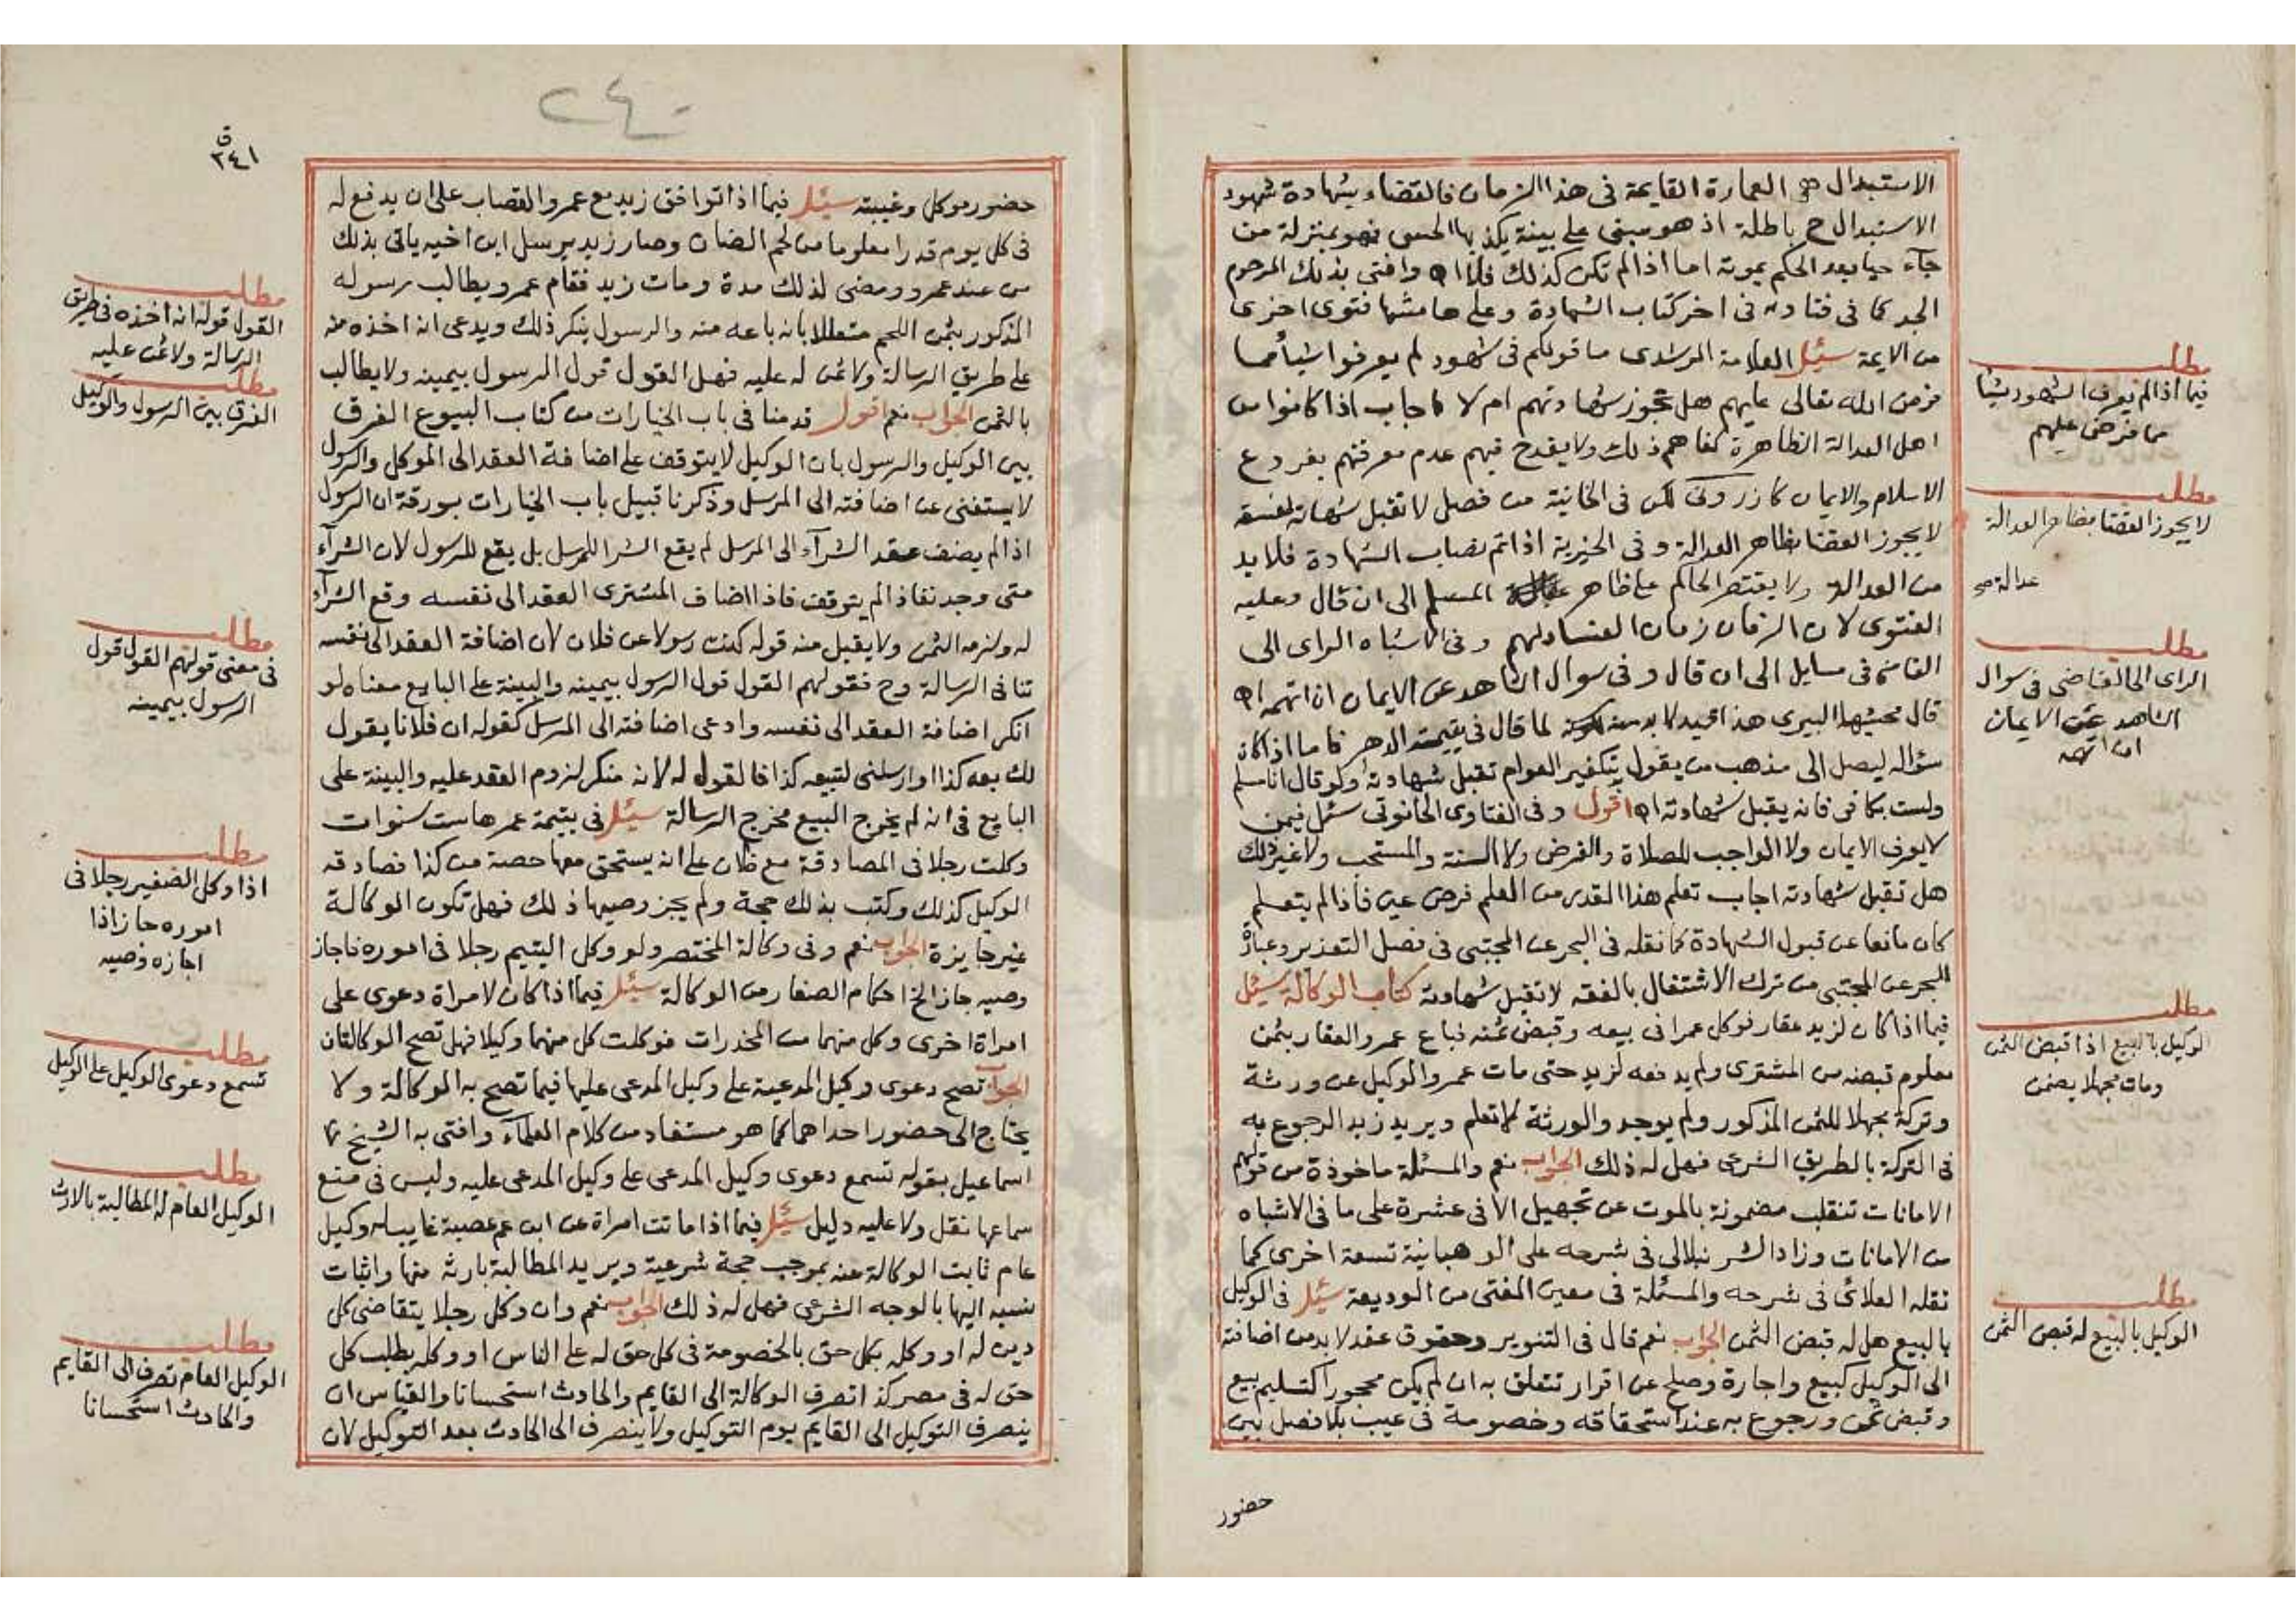 الاستبدال هي العمارة القايمة فى هذا الزمان فالقضاء بشهادة شهود
الاستبدال ح باطلة اذ هو مبنى على بينة يكذبها الحس فهو بمنزلة من
جآء حيا بعد الحكم بموته اما اذا لم تكن كذلك فلا اه وافتى بذلك المرحوم
الجد كما فى فتاويه فى اخر كتاب الشهادة وعلى هامشها فتوى اخرى
من الايمة سئل العلامة المرشدى ما قولكم فى شهود لم يعرفوا شيأ مما
فرض الله تعالى عليهم هل تجوز شهادتهم ام لا فاجاب اذا كانوا من
اهل العدالة الظاهرة كفاهم ذلك ولا يقدح فيهم عدم معرفتهم بفروع
الاسلام والايمان كازرونى لكن فى الخانية من فصل لا تقبل شهادته لفسقه
لا يجوز القضا بظاهر العدالة وفى الخيرية اذا تم نصاب الشهادة فلا بد
من العدالة ولا يقتصر الحاكم على ظاهر المسلم الى ان قال وعليه
الفتوى لان الزمان زمان الفساد وفى الاشباه الراى الى
القاضى فى مسايل الى ان قال وفى سوال الشاهد عن الايمان ان اتهمه اه
قال محشيها البيرى هذا قيد لا بد منه لما قال فى يتيمة الدهر فاما اذا كان
سؤاله ليصل الى مذهب من يقول بتكفير العوام تقبل شهادته ولو قال انا مسلم
ولست بكافر فانه يقبل شهادته اه اقول وفى الفتاوى الحانوتى سئل فيمن
لا يعرف الايمان ولا الواجب للصلاة والفرض ولا السنة والمستحب ولا غير ذلك
هل تقبل شهادته اجاب تعلم هذا القدر من العلم فرض عين فاذا لم يتعلم
كان مانعا عن قبول الشهادة كما نقله فى البحر عن المجتبى فى فصل التعزير وعبارة
البحر عن المجتبى من ترك الاشتغال بالفقه لا تقبل شهادته كتاب الوكالة سئل
فيما اذا كان لزيد عقار فوكل عمرا فى بيعه وقبض ثمنه فباع عمرو العقار بثمن
معلوم قبضه من المشترى ولم يدفعه لزيد حتى مات عمرو الوكيل عن ورثة
وتركة مجهلا للثمن المذكور ولم يوجد والورثة لا تعلم ويريد زيد الرجوع به
فى التركة بالطريق الشرعى فهل له ذلك الجواب نعم والمسئلة ماخوذة من قولهم
الامانات تنقلب مضمونة بالموت عن تجهيل الا فى عشرة على ما فى الاشباه
من الامانات وزاد الشرنبلالى فى شرحه على الوهبانية تسعة اخرى كما
نقله العلائى فى شرحه والمسئلة فى معين المفتى من الوديعة سئل فى الوكيل
بالبيع هل له قبض الثمن الجواب نعم قال فى التنوير وحقوق عقد لا بد من اضافته
الى الوكيل كبيع واجارة وصلح عن اقرار تتعلق به ان لم يكن محجورا كتسليم مبيع
وقبض ثمن ورجوع به عند استحقاقه وخصومة فى عيب بلا فصل بين
حضور
مطلب
فيما اذا لم يعرف الشهود شيئا
مما فرض عليهم
مطلب
لا يجوز القضا بظاهر العدالة
عدالة صح
مطلب
الراى الى القاضى فى سوال
الشاهد عن الايمان
ان اتهمه
مطلب
الوكيل بالبيع اذا قبض الثمن
ومات مجهلا يضمن
مطلب
الوكيل بالبيع له قبض الثمن
٢٤٠
ق
٣٤١
حضور موكل وغيبته سئل فيما اذا توافق زيد مع عمرو القصاب على ان يدفع له
فى كل يوم قدرا معلوما من لحم الضان وصار زيد يرسل ابن اخيه ياتى بذلك
من عند عمرو ومضى لذلك مدة ومات زيد فقام عمرو يطالب رسوله
المذكور بثمن اللحم متعللا بانه باعه منه والرسول ينكر ذلك ويدعى انه اخذه منه
على طريق الرسالة ولا ثمن له عليه فهل القول قول الرسول بيمينه ولا يطالب
بالثمن الجواب نعم اقول قدمنا فى باب الخيارات من كتاب البيوع الفرق
بين الوكيل والرسول بان الوكيل لا يتوقف على اضافة العقد الى الموكل والرسول
لا يستغنى عن اضافته الى المرسل وذكرنا قبيل باب الخيارات بورقة ان الرسول
اذا لم يضف عقد الشرآء الى المرسل لم يقع الشرا للمرسل بل يقع للرسول لان الشرآء
متى وجد نفاذا لم يتوقف فاذا اضاف المشترى العقد الى نفسه وقع الشرآء
له ولزمه الثمن ولا يقبل منه قوله كنت رسولا عن فلان لان اضافة العقد الى نفسه
تنافى الرسالة وح فقولهم القول قول الرسول بيمينه والبينة على البايع معناه لو
انكر اضافة العقد الى نفسه وادعى اضافته الى المرسل كقوله ان فلانا يقول
لك بعه كذا او ارسلنى لتبيعه كذا فالقول له لانه منكر لزوم العقد عليه والبينة على
البايع فى انه لم يخرج البيع مخرج الرسالة سئل فى يتيمة عمرها ست سنوات
وكلت رجلا فى المصادقة مع فلان على انه يستحق معها حصة من كذا فصادقه
الوكيل كذلك وكتب بذلك حجة ولم يجز وصيها ذلك فهل تكون الوكالة
غير جايزة الجواب نعم وفى وكالة المختصر ولو وكل اليتيم رجلا فى اموره فاجاز
وصيه جاز الخ احكام الصغار من الوكالة سئل فيما اذا كان لامراة دعوى على
امراة اخرى وكل منهما من المخدرات فوكلت كل منهما وكيلا فهل تصح الوكالتان
الجواب تصح دعوى وكيل المدعية على وكيل المدعى عليها فيما تصح به الوكالة ولا
يحتاج الى حضور احداهما كما هو مستفاد من كلام العلمآء وافتى به الشيخ
اسماعيل بقوله تسمع دعوى وكيل المدعى على وكيل المدعى عليه وليس فى منع
سماعها نقل ولا عليه دليل سئل فيما اذا ماتت امراة عن ابن عم عصبة غايب له وكيل
عام ثابت الوكالة عنه بموجب حجة شرعية ويريد المطالبة بارثه منها واثبات
نسبه اليها بالوجه الشرعى فهل له ذلك الجواب نعم وان وكل رجلا يتقاضى كل
دين له او وكله بكل حق بالخصومة فى كل حق له على الناس او وكله بطلب كل
حق له فى مصر كذا تصرف الوكالة الى القايم والحادث استحسانا والقياس ان
ينصرف التوكيل الى القايم يوم التوكيل ولا ينصرف الى الحادث بعد التوكيل لان
مطلب
القول قوله انه اخذه فى طريق
الرسالة ولا ثمن عليه
مطلب
الفرق بين الرسول والوكيل
مطلب
فى معنى قولهم القول قول
الرسول بيمينه
مطلب
اذا وكل الصغير رجلا فى
اموره جاز اذا
اجازه وصيه
مطلب
تسمع دعوى الوكيل على الوكيل
مطلب
الوكيل العام له المطالبة بالارث
مطلب
الوكيل العام تصرف الى القايم
والحادث استحسانا